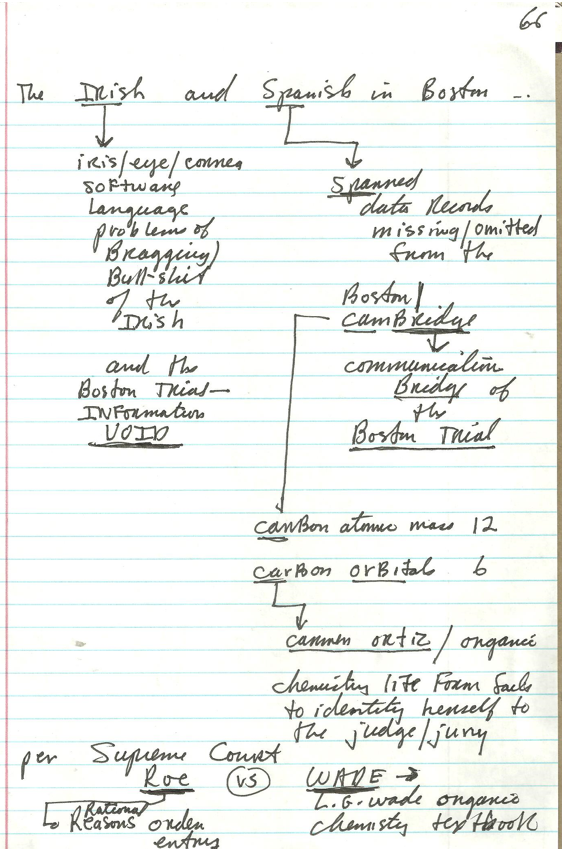 66
The Irish and Spanish in Boston ...
iris/eye/cornea
software
Language
problems of
Bragging/
Bull-shit
of the
Irish
and the
Boston Trial—
INFormation
VOID
Spanned
data Records
missing/omitted
from the
Boston/
camBridge
communication
Bridge of
the
Boston Trial
carBon atomic mass 12
carBon orBitals 6
carmen ortiz / organic
chemistry life Form fails
to identify herself to
the judge/jury
per Supreme Court
Roe vs WADE →
Rational
Reasons orden
entry
L.G. wade organic
chemistry textbook